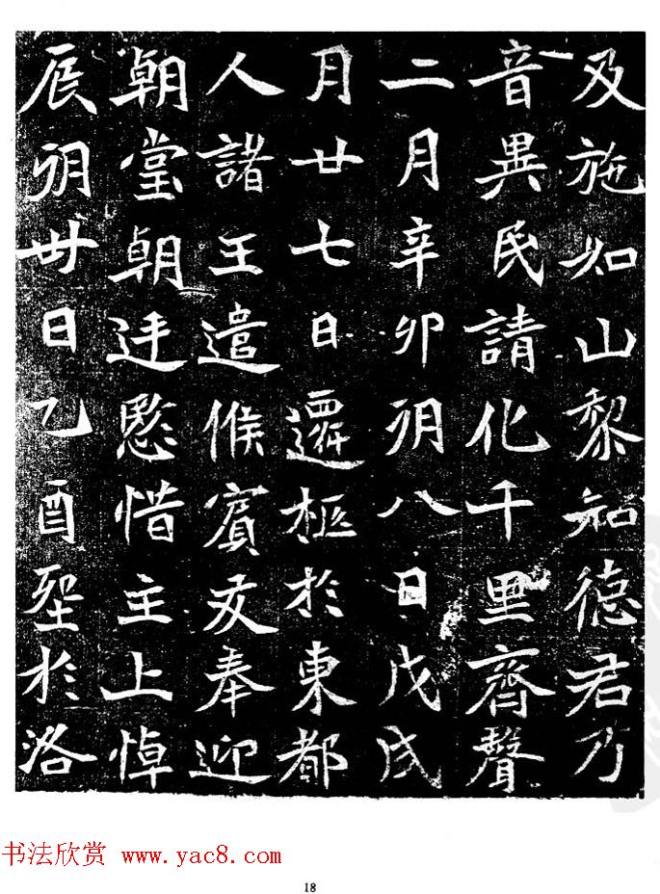 及施如山黎知德君乃
音異民請化千里齊聲
二月辛卯朔八日戊戌
月廿七日遷柩於東都
人諸王遣候賓友奉迎
朝堂朝廷愍惜主上悼
辰朔卅日乙酉於洛
书法欣赏 www.yac8.com
18